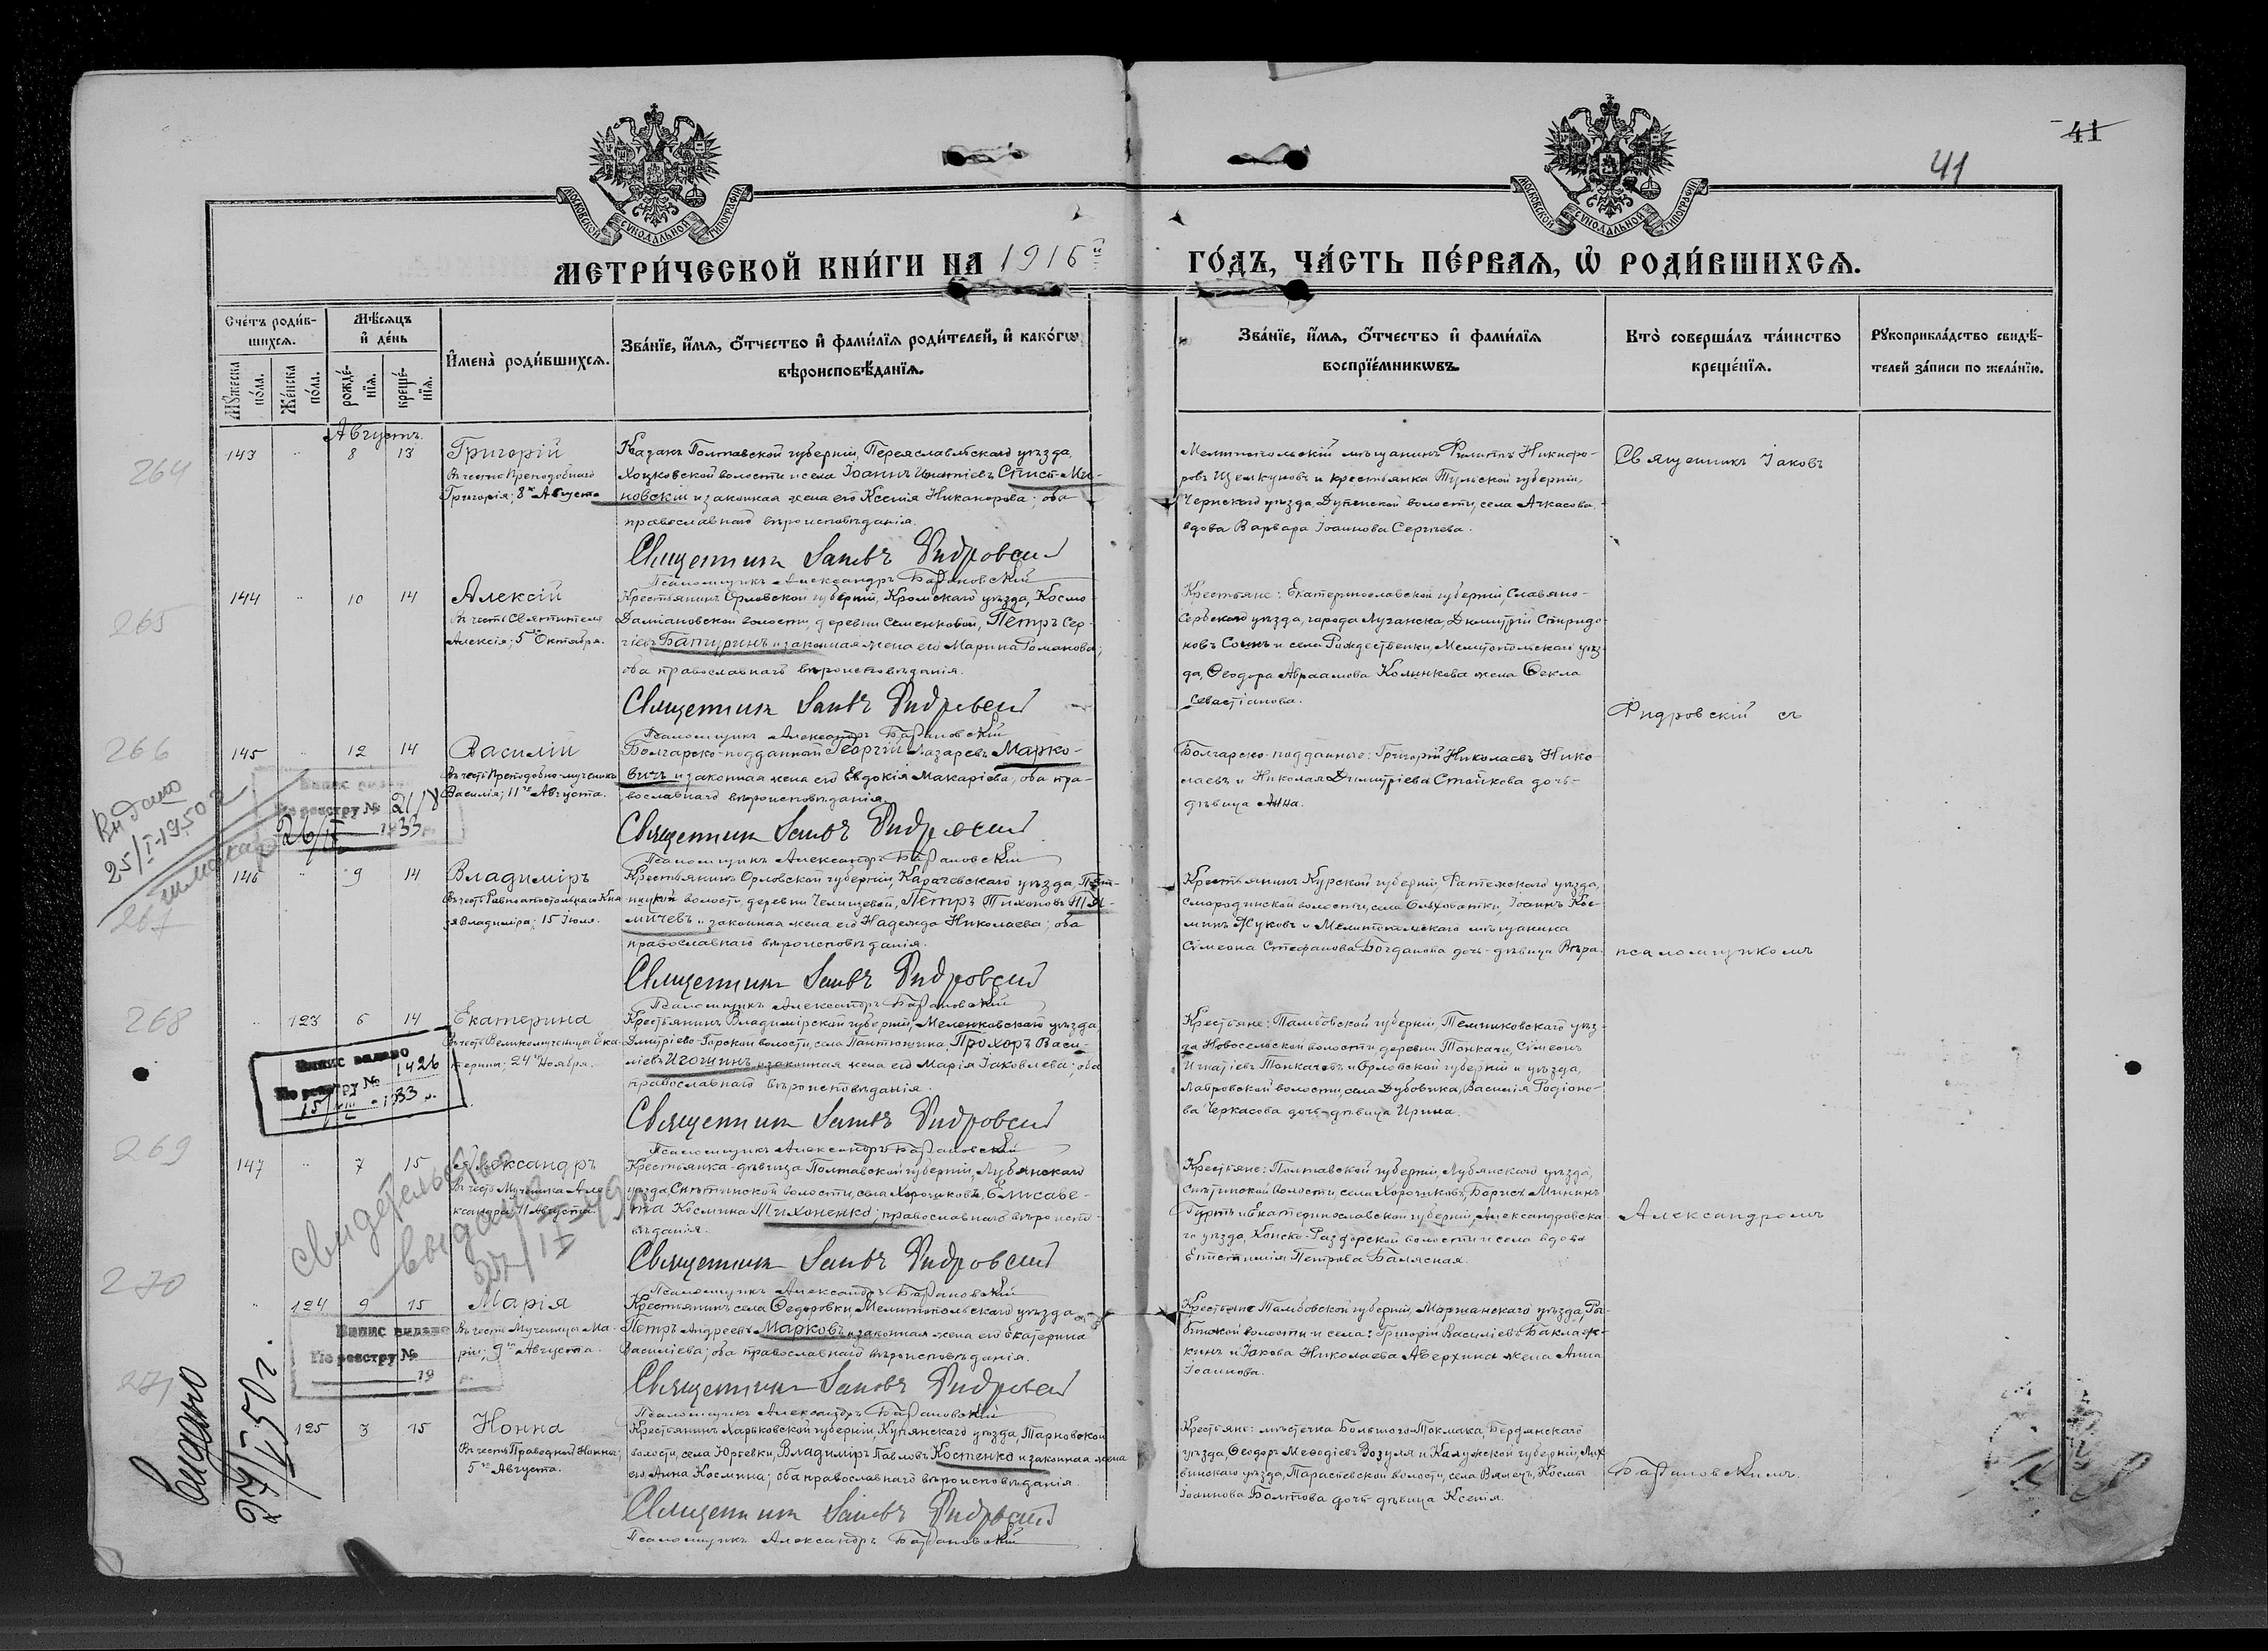 41
41
МОСКОВСКОЙ СУНОДАЛЬНОЙ ТИПОГРАФІИ
МОСКОВСКОЙ СУНОДАЛЬНОЙ ТИПОГРАФІИ
МЕТРИ́ЧЕСКОЙ КНИ́ГИ НА 1916й
ГО́ДЪ, ЧА́СТЬ ПЕ́РВАѦ, Ѡ РОДИ́ВШИХСѦ.
Сче́тъ роди́в-
шихсѧ.
Мꙋ́жеска по́ла.
Же́нска по́ла.
Мѣ́сѧцъ
и҆ де́нь
рожде́-
нїѧ.
креще́-
нїѧ.
И҆мена̀ роди́вшихсѧ.
Зва́нїе, и҆́мѧ, ѻ҆́тчество и҆ фами́лїѧ роди́телей, и҆ како́гѡ
вѣроисповѣ́данїѧ.
Зва́нїе, и҆́мѧ, ѻ҆́тчество и҆ фами́лїѧ
воспрїе́мникѡвъ.
Кто̀ соверша́лъ та́инство
креще́нїѧ.
Рꙋкоприкла́дство свидѣ́-
телей за́писи по жела́нїю.
Августъ.
264
143 " 8 13 Григорій
Въ честь Преподобнаго
Григорія; 8го Августа
Казакъ Полтавской губерніи, Переяславльскаго уѣзда,
Хоцковской волости и села Іоаннъ Игнатіевъ
новскій и законная жена его Ксенія Никанорова; оба
православнаго вѣроисповѣданія.
Священникъ Іаковъ Фидровскій
Псаломщикъ Александръ Барановскій
Мелитопольскій мѣщанинъ Филиппъ Никифо-
ровъ Щелкуновъ и крестьянка Тульской губерніи,
Чернскаго уѣзда, волости, села Ачкасова,
вдова Варвара Іоаннова Сергѣева.
Священникъ Іаковъ
265
144 " 10 14 Алексій
Въ честь Святителя
Алексія; 5го Октября.
Крестьянинъ Орловской губерніи, Кромскаго уѣзда, Космо-
Даміановской волости, деревни Семенковой, Петръ Сер-
гіевъ Батуринъ и законная жена его Марина Романова;
оба православнаго вѣроисповѣданія.
Священникъ Іаковъ Фидровскій
Псаломщикъ Александръ Барановскій
Крестьяне: Екатеринославской губерніи, Славяно-
Сербскаго уѣзда, города Луганска, Димитрій Спиридо-
новъ и села Рождественки, Мелитопольскаго уѣз-
да, Ѳеодора Авраамова Колинкова жена Ѳекла
Севастіанова.
Фидровскій съ
266
145 " 12 14 Василій
Въ честь Преподобно-мученика
Василія; 11го Августа.
Болгарско-подданный Георгій Лазаревъ Марко-
вичъ и законная жена его Евдокія Макаріева; оба пра-
вославнаго вѣроисповѣданія.
Священникъ Іаковъ Фидровскій
Псаломщикъ Александръ Барановскій
Болгарско-подданные: Григорій Николаевъ Нико-
лаевъ и Николая Димитріева Стойкова дочь-
дѣвица Анна.
Видано
25/I-1950 г.
Випис видано
По реєстру № 21/8
1933 р.
267
146 " 9 14 Владиміръ
Въ честь Равноапостольнаго Кня-
зя Владиміра; 15 Іюля.
Крестьянинъ Орловской губерніи, Карачевскаго уѣзда,
волости, деревни Челищевой, Петръ Тихоновъ
мичевъ и законная жена его Надежда Николаева; оба
православнаго вѣроисповѣданія.
Священникъ Іаковъ Фидровскій
Псаломщикъ Александръ Барановскій
Крестьянинъ Курской губерніи, Фатежскаго уѣзда,
Смородинской волости, села Ольховатки, Іоаннъ Кос-
минъ Жуковъ и Мелитопольскаго мѣщанина
Сѵмеона Стефанова Богданова дочь-дѣвица Вѣра.
псаломщикомъ
268
" 123 6 14 Екатерина
Въ честь Великомученицы Ека-
терины; 24го Ноября.
Крестьянинъ Владимірской губерніи, Меленковскаго уѣзда,
Дмитріево-Горской волости, села Пантюшина, Прохоръ Васи-
ліевъ Игошинъ и законная жена его Марія Іаковлева; оба
православнаго вѣроисповѣданія.
Священникъ Іаковъ Фидровскій
Псаломщикъ Александръ Барановскій
Крестьяне: Тамбовской губерніи, Темниковскаго уѣз-
да Новосельской волости, деревни Сѵмеонъ
Игнатіевъ и Орловской губерніи и уѣзда,
Лавровской волости, села Дубовика, Василія Родіоно-
ва Черкасова дочь-дѣвица Ирина.
Випис видано
По реєстру № 1426
15/VIII - 1933 р.
269
147 " 7 15 Александръ
Въ честь Мученика Але-
ксандра; 11 Августа.
Крестьянка-дѣвица Полтавской губерніи, Лубенскаго
уѣзда, Снѣтинской волости, села Хорошковъ, Елисаве-
та Космина Тихоненко; православнаго вѣроиспо-
вѣданія.
Священникъ Іаковъ Фидровскій
Псаломщикъ Александръ Барановскій
Крестьяне: Полтавской губерніи, Лубянскаго уѣзда,
Снѣтинской волости, села Хорошковъ, Борисъ Мининъ
и Екатеринославской губерніи, Александровска-
го уѣзда, Конско-Раздорской волости и села вдова
Епистимія Петрова Балясная.
Александромъ
свидетельство
выдано
270
" 124 9 15 Марія
Въ честь Мученицы Ма-
ріи; 9го Августа.
Крестьянинъ села Ѳедоровки Мелитопольскаго уѣзда
Петръ Андреевъ Марковъ и законная жена его Екатерина
Василіева; оба православнаго вѣроисповѣданія.
Священникъ Іаковъ Фидровскій
Псаломщикъ Александръ Барановскій
Крестьяне Тамбовской губерніи, Моршанскаго уѣзда,
волости и села: Григорій Василіевъ
кинъ и Іакова Николаева Аверхина жена Анна
Іоаннова.
Випис видано
По реєстру №
19 р.
271
125 3 15 Нонна
Въ честь Праведной Нонны;
5го Августа.
Крестьянинъ Харьковской губерніи, Купянскаго уѣзда, Тарновской
волости, села Юрьевки, Владиміръ Павловъ Костенко и законная жена
его Анна Космина; оба православнаго вѣроисповѣданія.
Священникъ Іаковъ Фидровскій
Псаломщикъ Александръ Барановскій
Крестьяне: мѣстечка Большого Токмака, Бердянскаго
уѣзда, Ѳеодоръ Меѳодіевъ Возуля и Калужской губерніи, Лих-
винскаго уѣзда, волости, села Космы
Іоаннова Болтова дочь-дѣвица Ксенія.
Барановскимъ.
Видано
27/I 50 г.